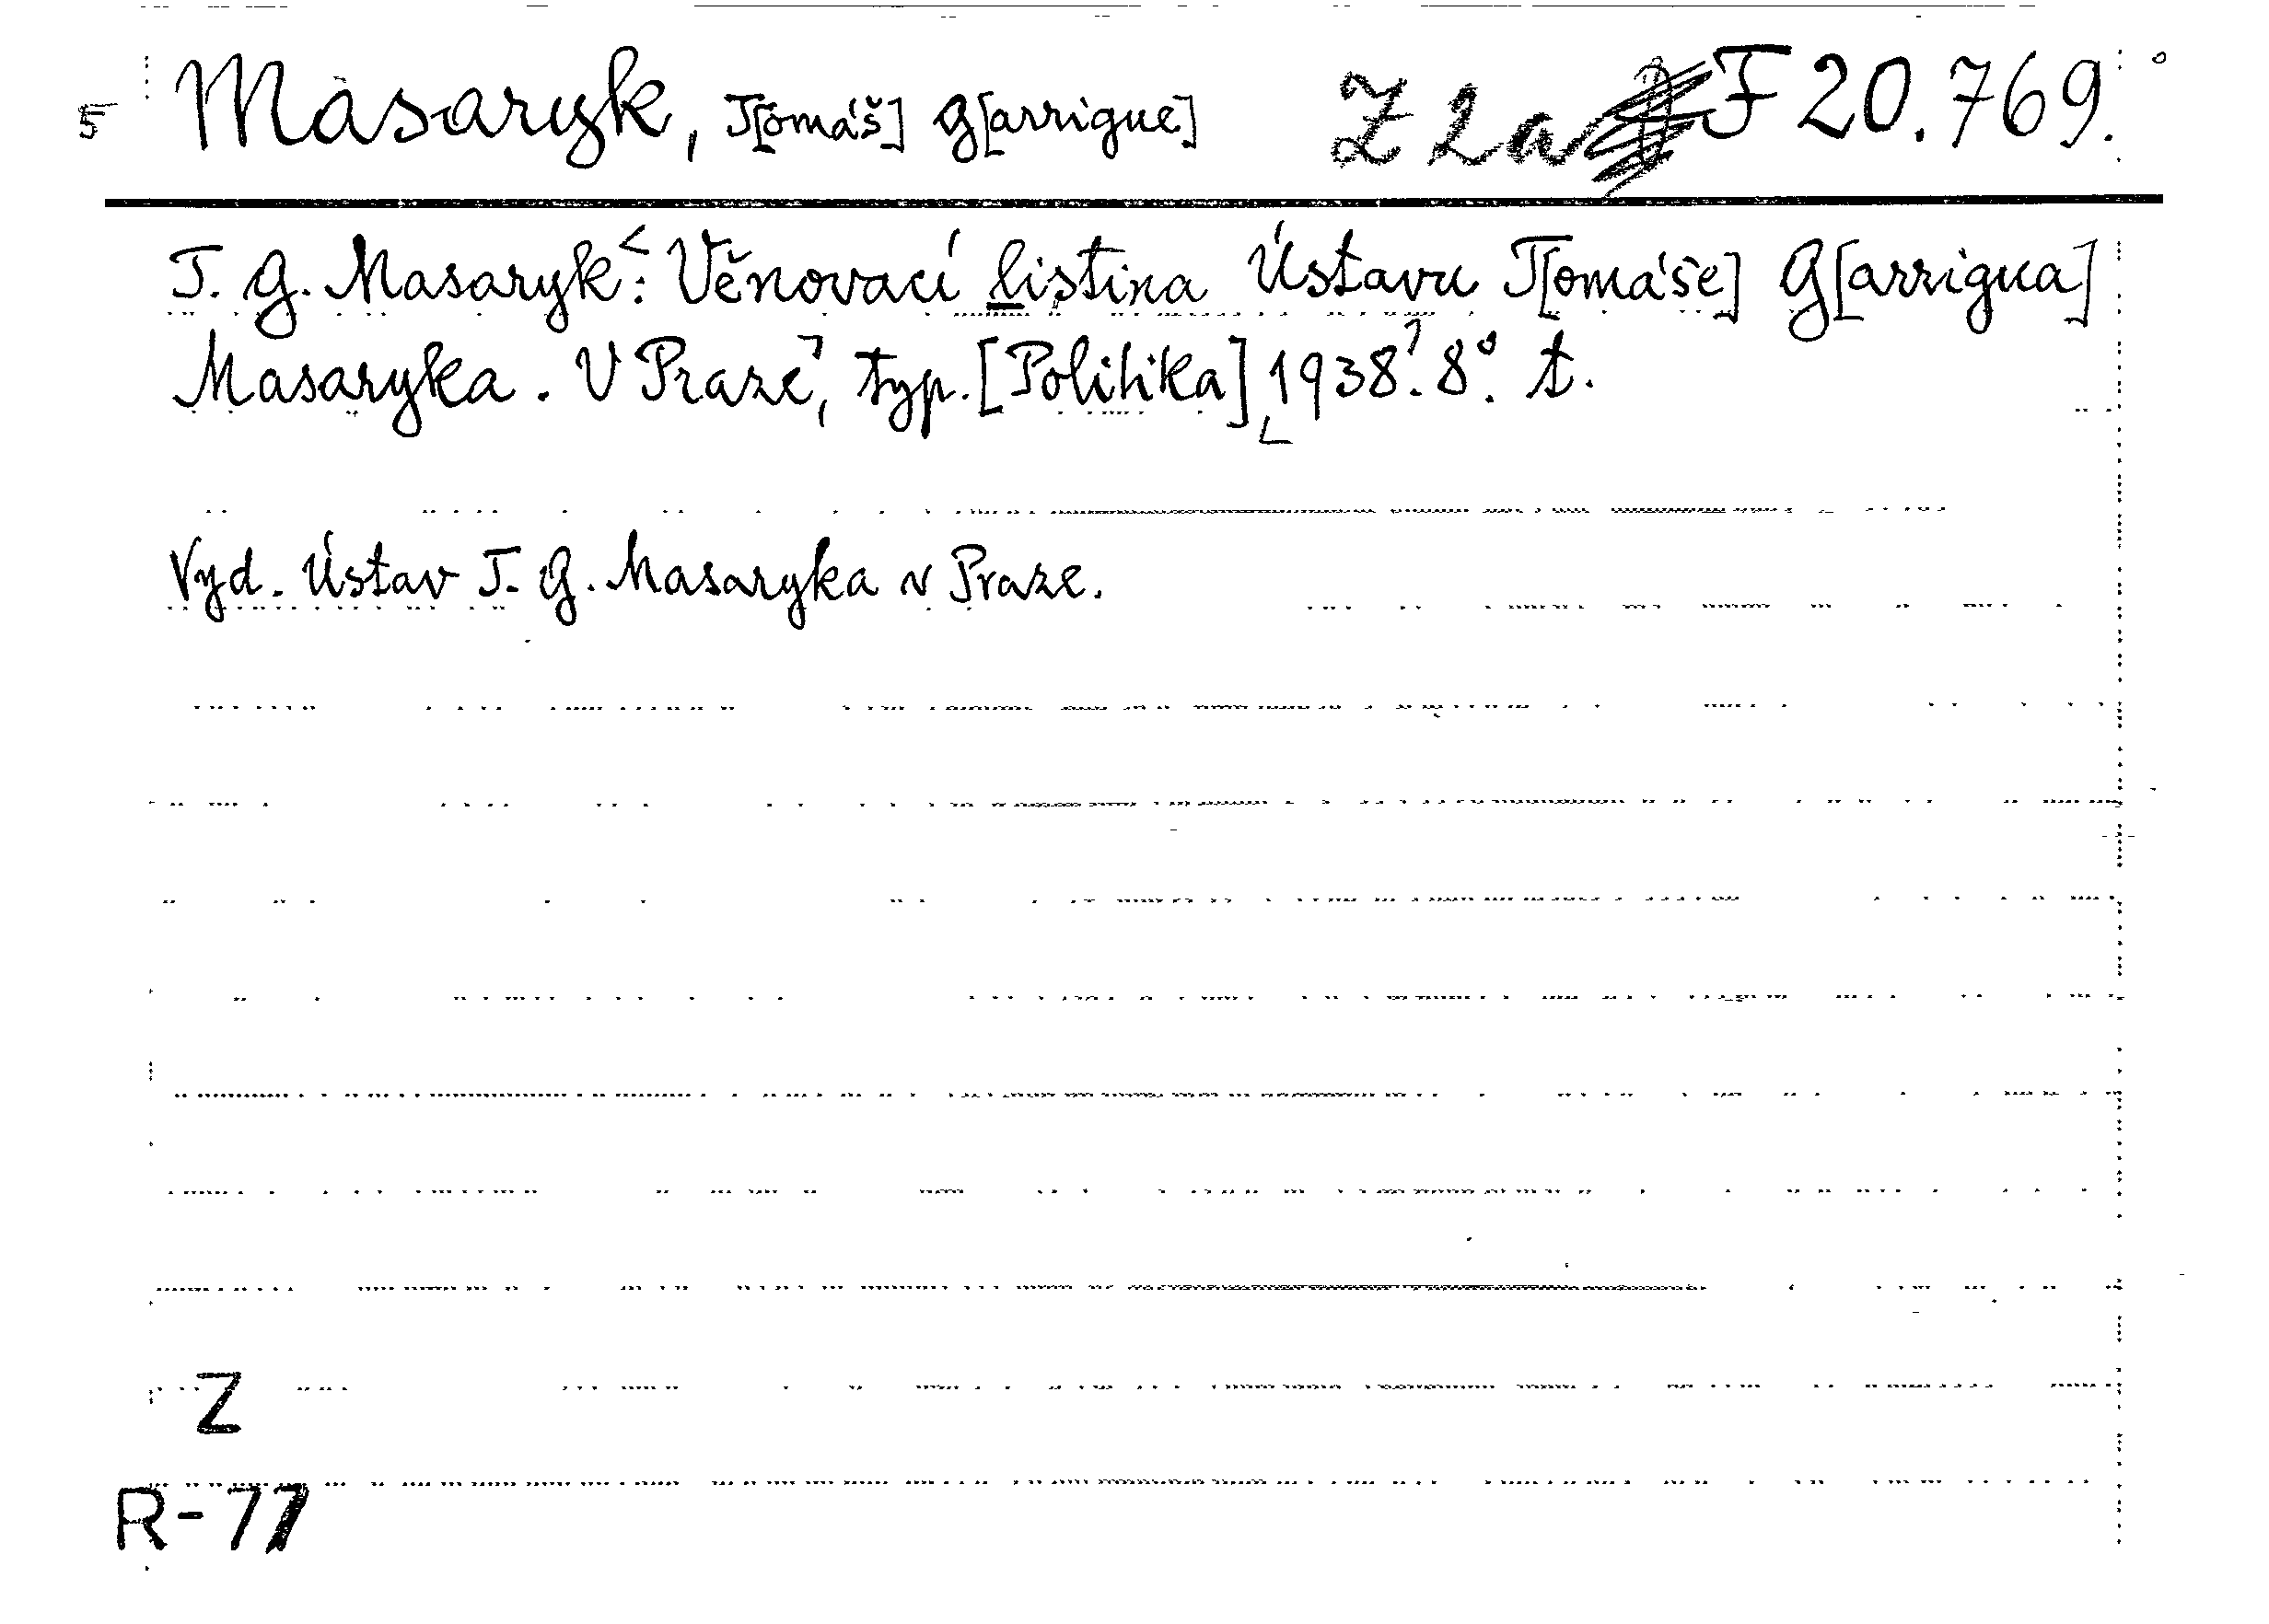 5 Masaryk, T[omáš] G[arrigue] Z 2a F 20.769.
T. G. Masaryk: Věnovací listina Ústavu T[omáše] G[arrigua]
Masaryka. V Praze, typ. [Politika] 1938. 8°. t.
Vyd. Ústav T. G. Masaryka v Praze.
Z
R-77